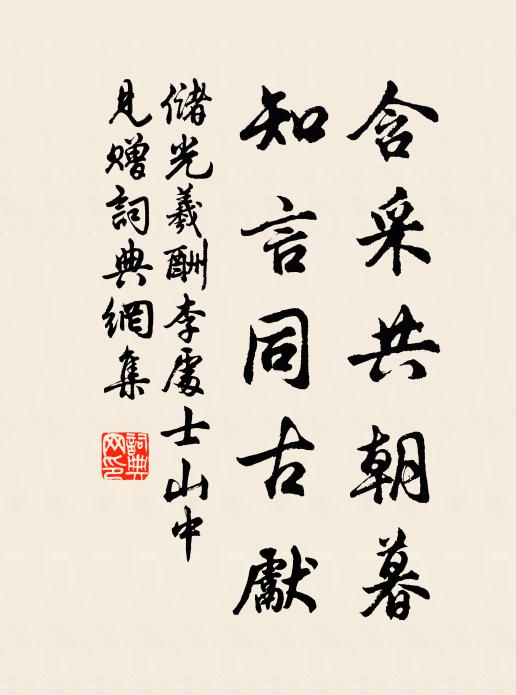 含采共朝暮
知言同古獻
儲光羲酬李處士山中
見贈詞典網集
詞典網印